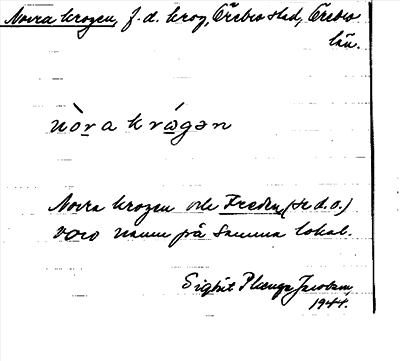 Norra krogen, f.d. krog, Örebro stad, Örebro
län.
nòra krǻgən
Norra krogen och Freden (se d.o.)
voro namn på samma lokal.
Sigbrit Plænge Jacobson,
1944.